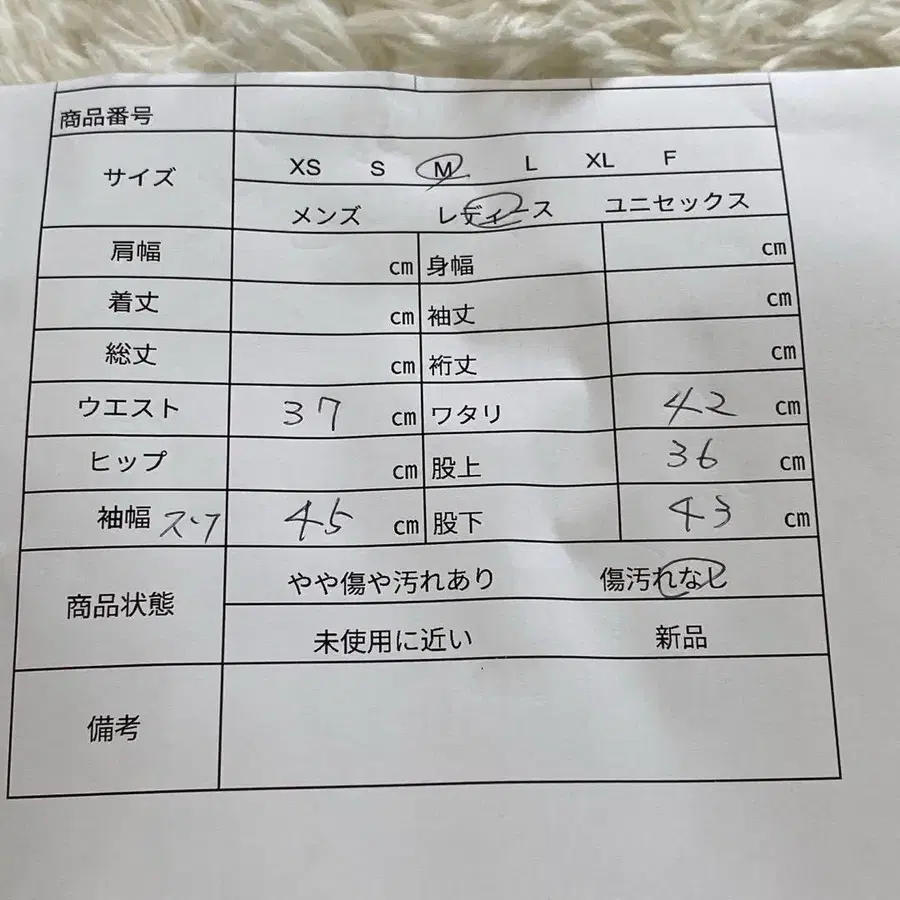 商品番号
サイズ XS S M L XL F
メンズ レディース ユニセックス
肩幅 cm 身幅 cm
着丈 cm 袖丈 cm
総丈 cm 裄丈 cm
ウエスト 37 cm ワタリ 42 cm
ヒップ cm 股上 36 cm
袖幅 スソ 45 cm 股下 43 cm
商品状態 やや傷や汚れあり 傷汚れなし
未使用に近い 新品
備考